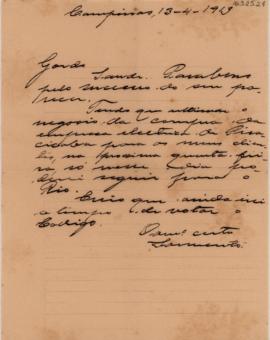 1032524
Campinas, 13-4-1929
Gordo
Saude. Parabens
pelo successo do seu pa
recer.
Tendo que ultimar o
negocio da compra da
empresa electrica de Pira
cicaba para os meus clien
tes, na proxima quarta fei
ra só nesse dia po
derei seguir para o
Rio.
Creio que ainda irei
a tempo de votar o
Codigo.
Sarmento